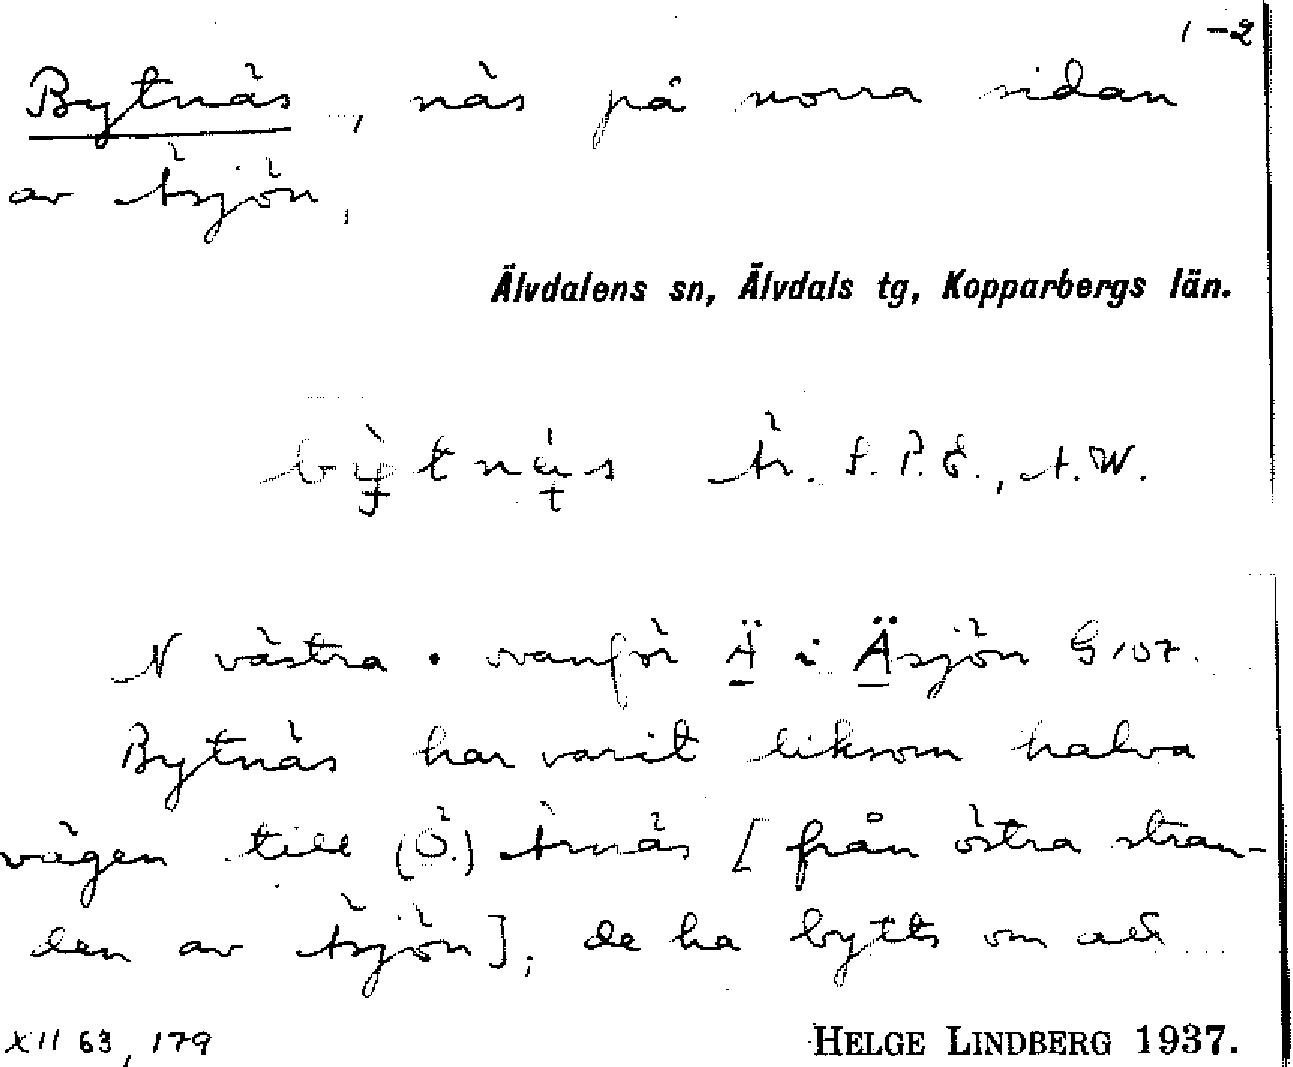 1-2
Bytnäs, näs på norra sidan
av Äsjön,
Älvdalens sn, Älvdals tg, Kopparbergs län.
bỳtnäs Är. L.P.E., A.W.
N västra • ovanför Ä i Äsjön G107.
Bytnäs har varit liksom halva
vägen till (Ö.) Ärnäs [från östra stran-
den av Äsjön]; de ha bytts om att
XII 63, 179
HELGE LINDBERG 1937.